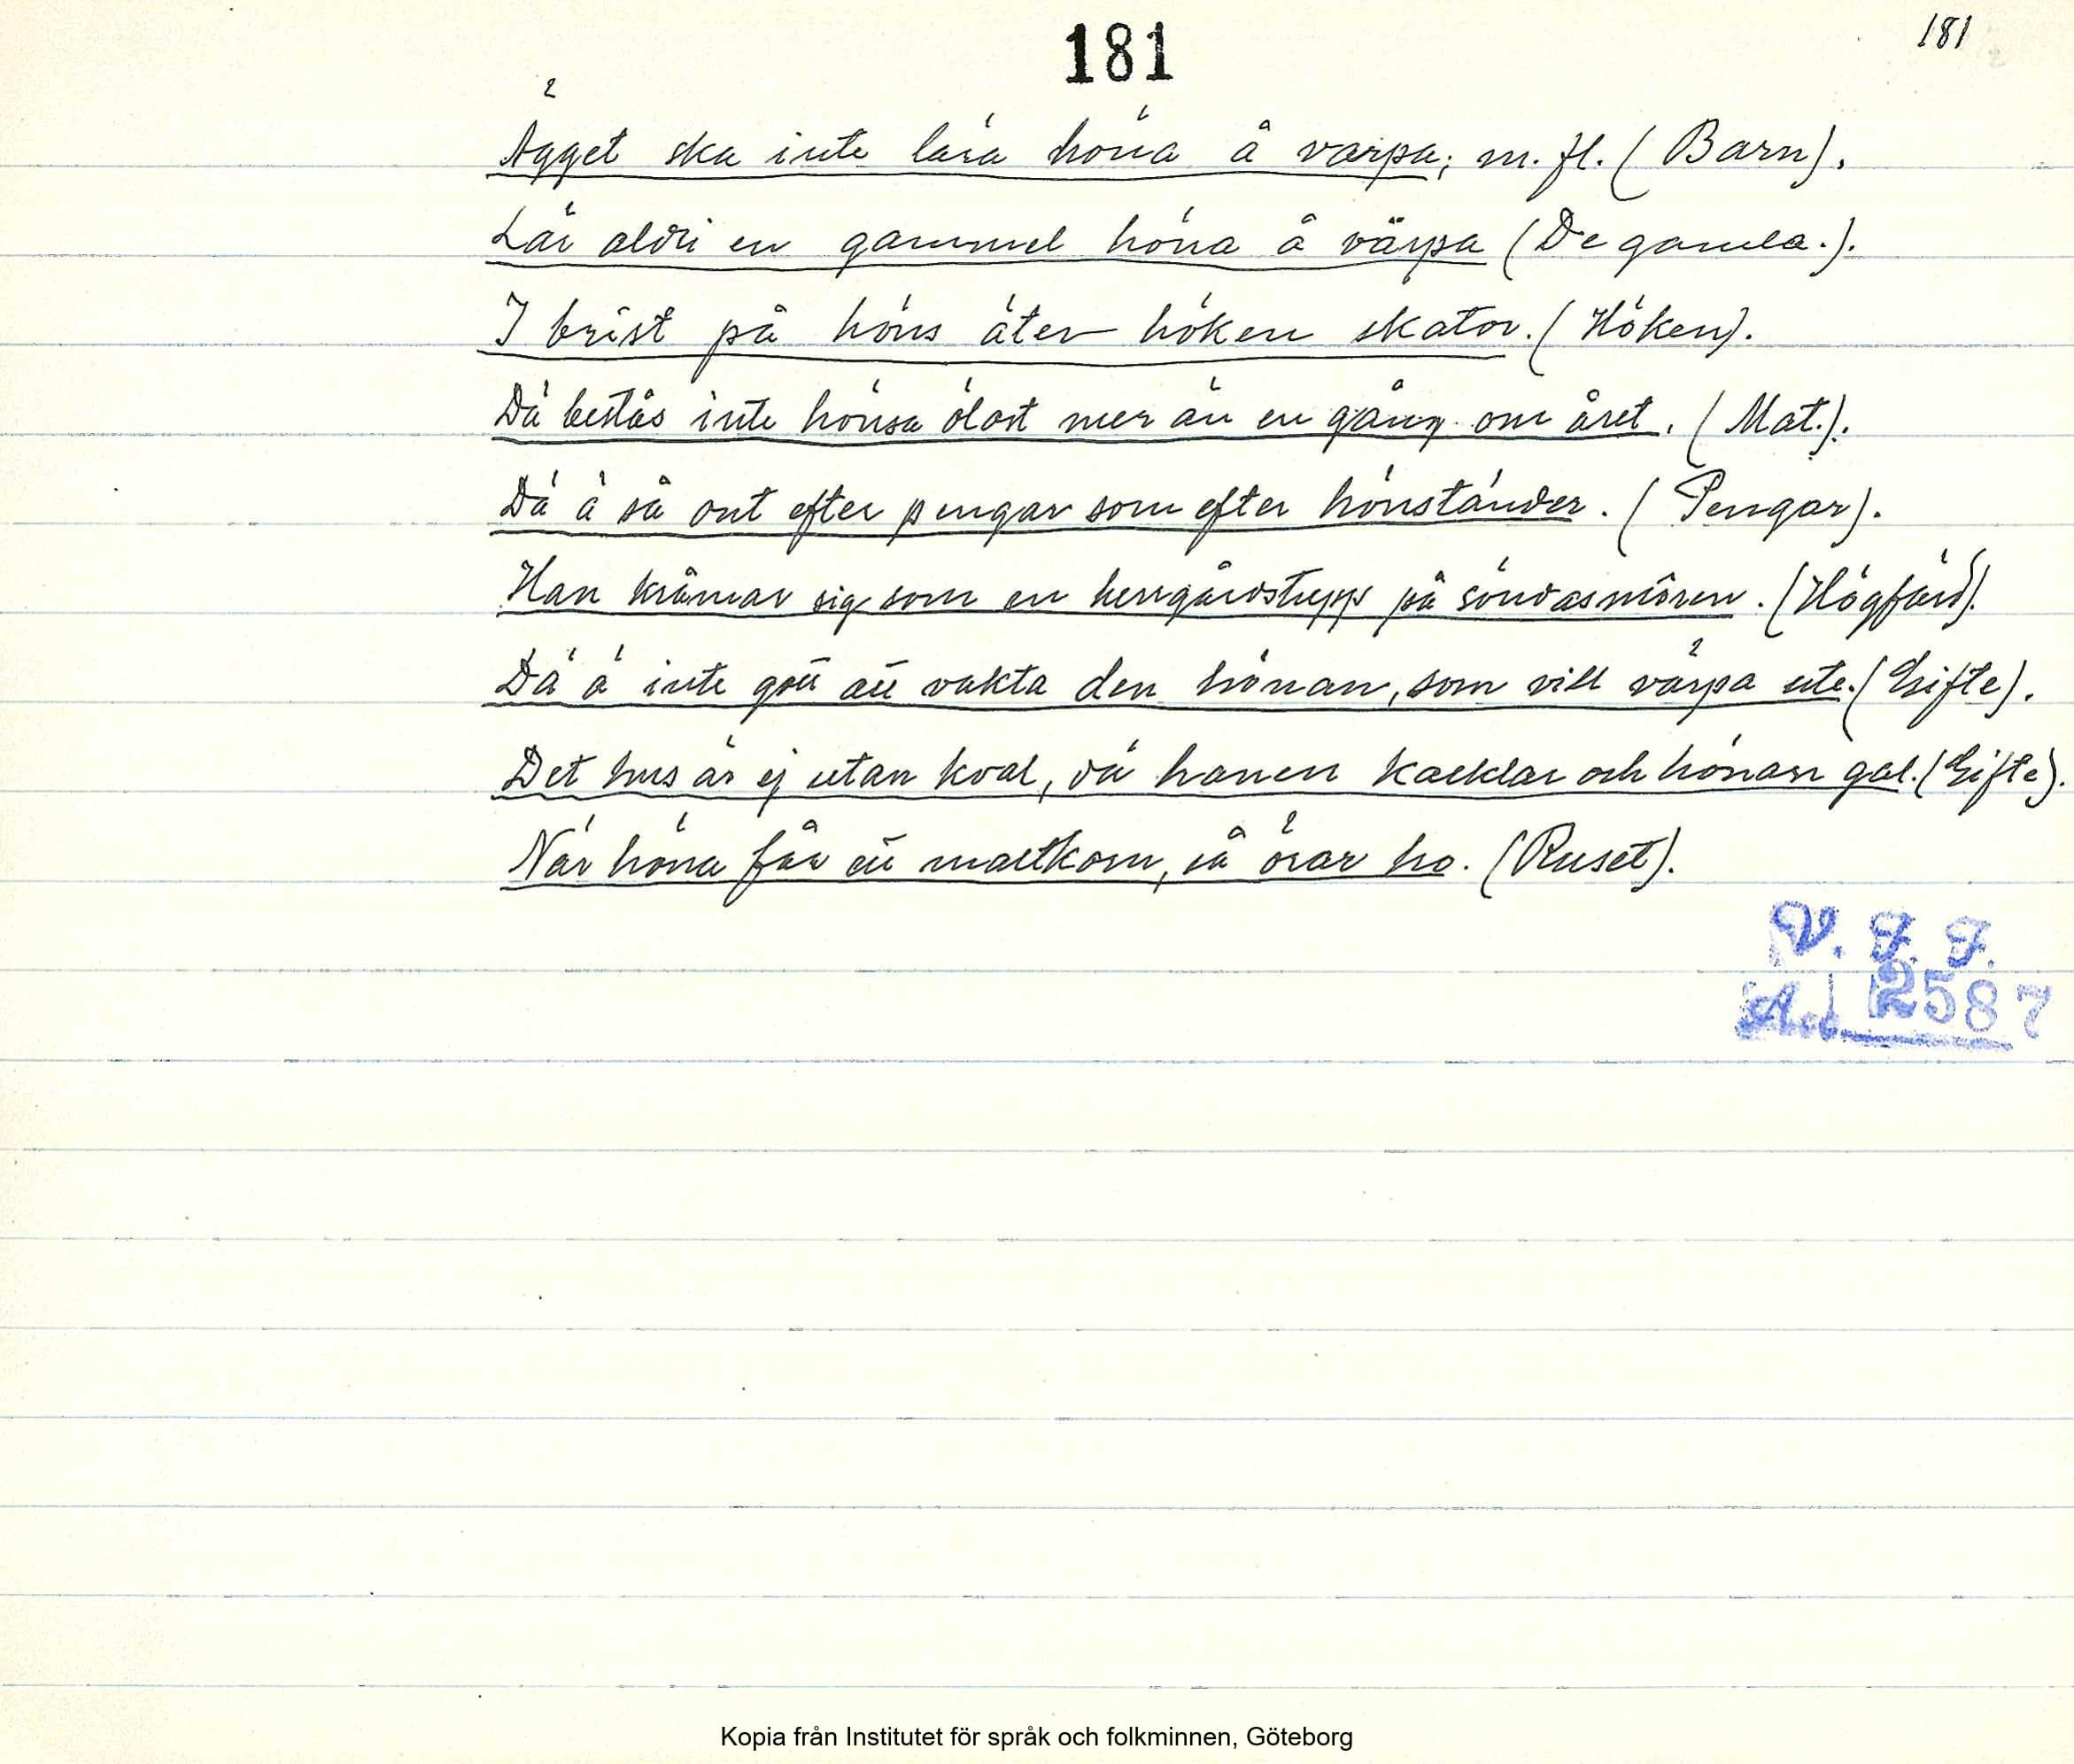 181
181
Ägget ska inte lära höna å värpa; m. fl. (Barn).
Lär aldri en gammel höna å värpa (De gamla.).
I brist på höns äter höken skator. (Höken).
Dä bestås inte hönsa ölost mer än en gång om året. (Mat.).
Dä ä så ont efter pengar som efter hönständer. (Pengar).
Han kråmar sig som en herrgårdstupp på söndasmôren. (Högfärd).
Dä ä inte gott att vakta den hönan, som vill värpa ute. (Gifte).
Det hus är ej utan kval, dä hanen kacklar och hönan gal. (Gifte).
När höna får ett maltkorn, så örar ho. (Ruset).
V. F. F.
Acc. 2587
Kopia från Institutet för språk och folkminnen, Göteborg